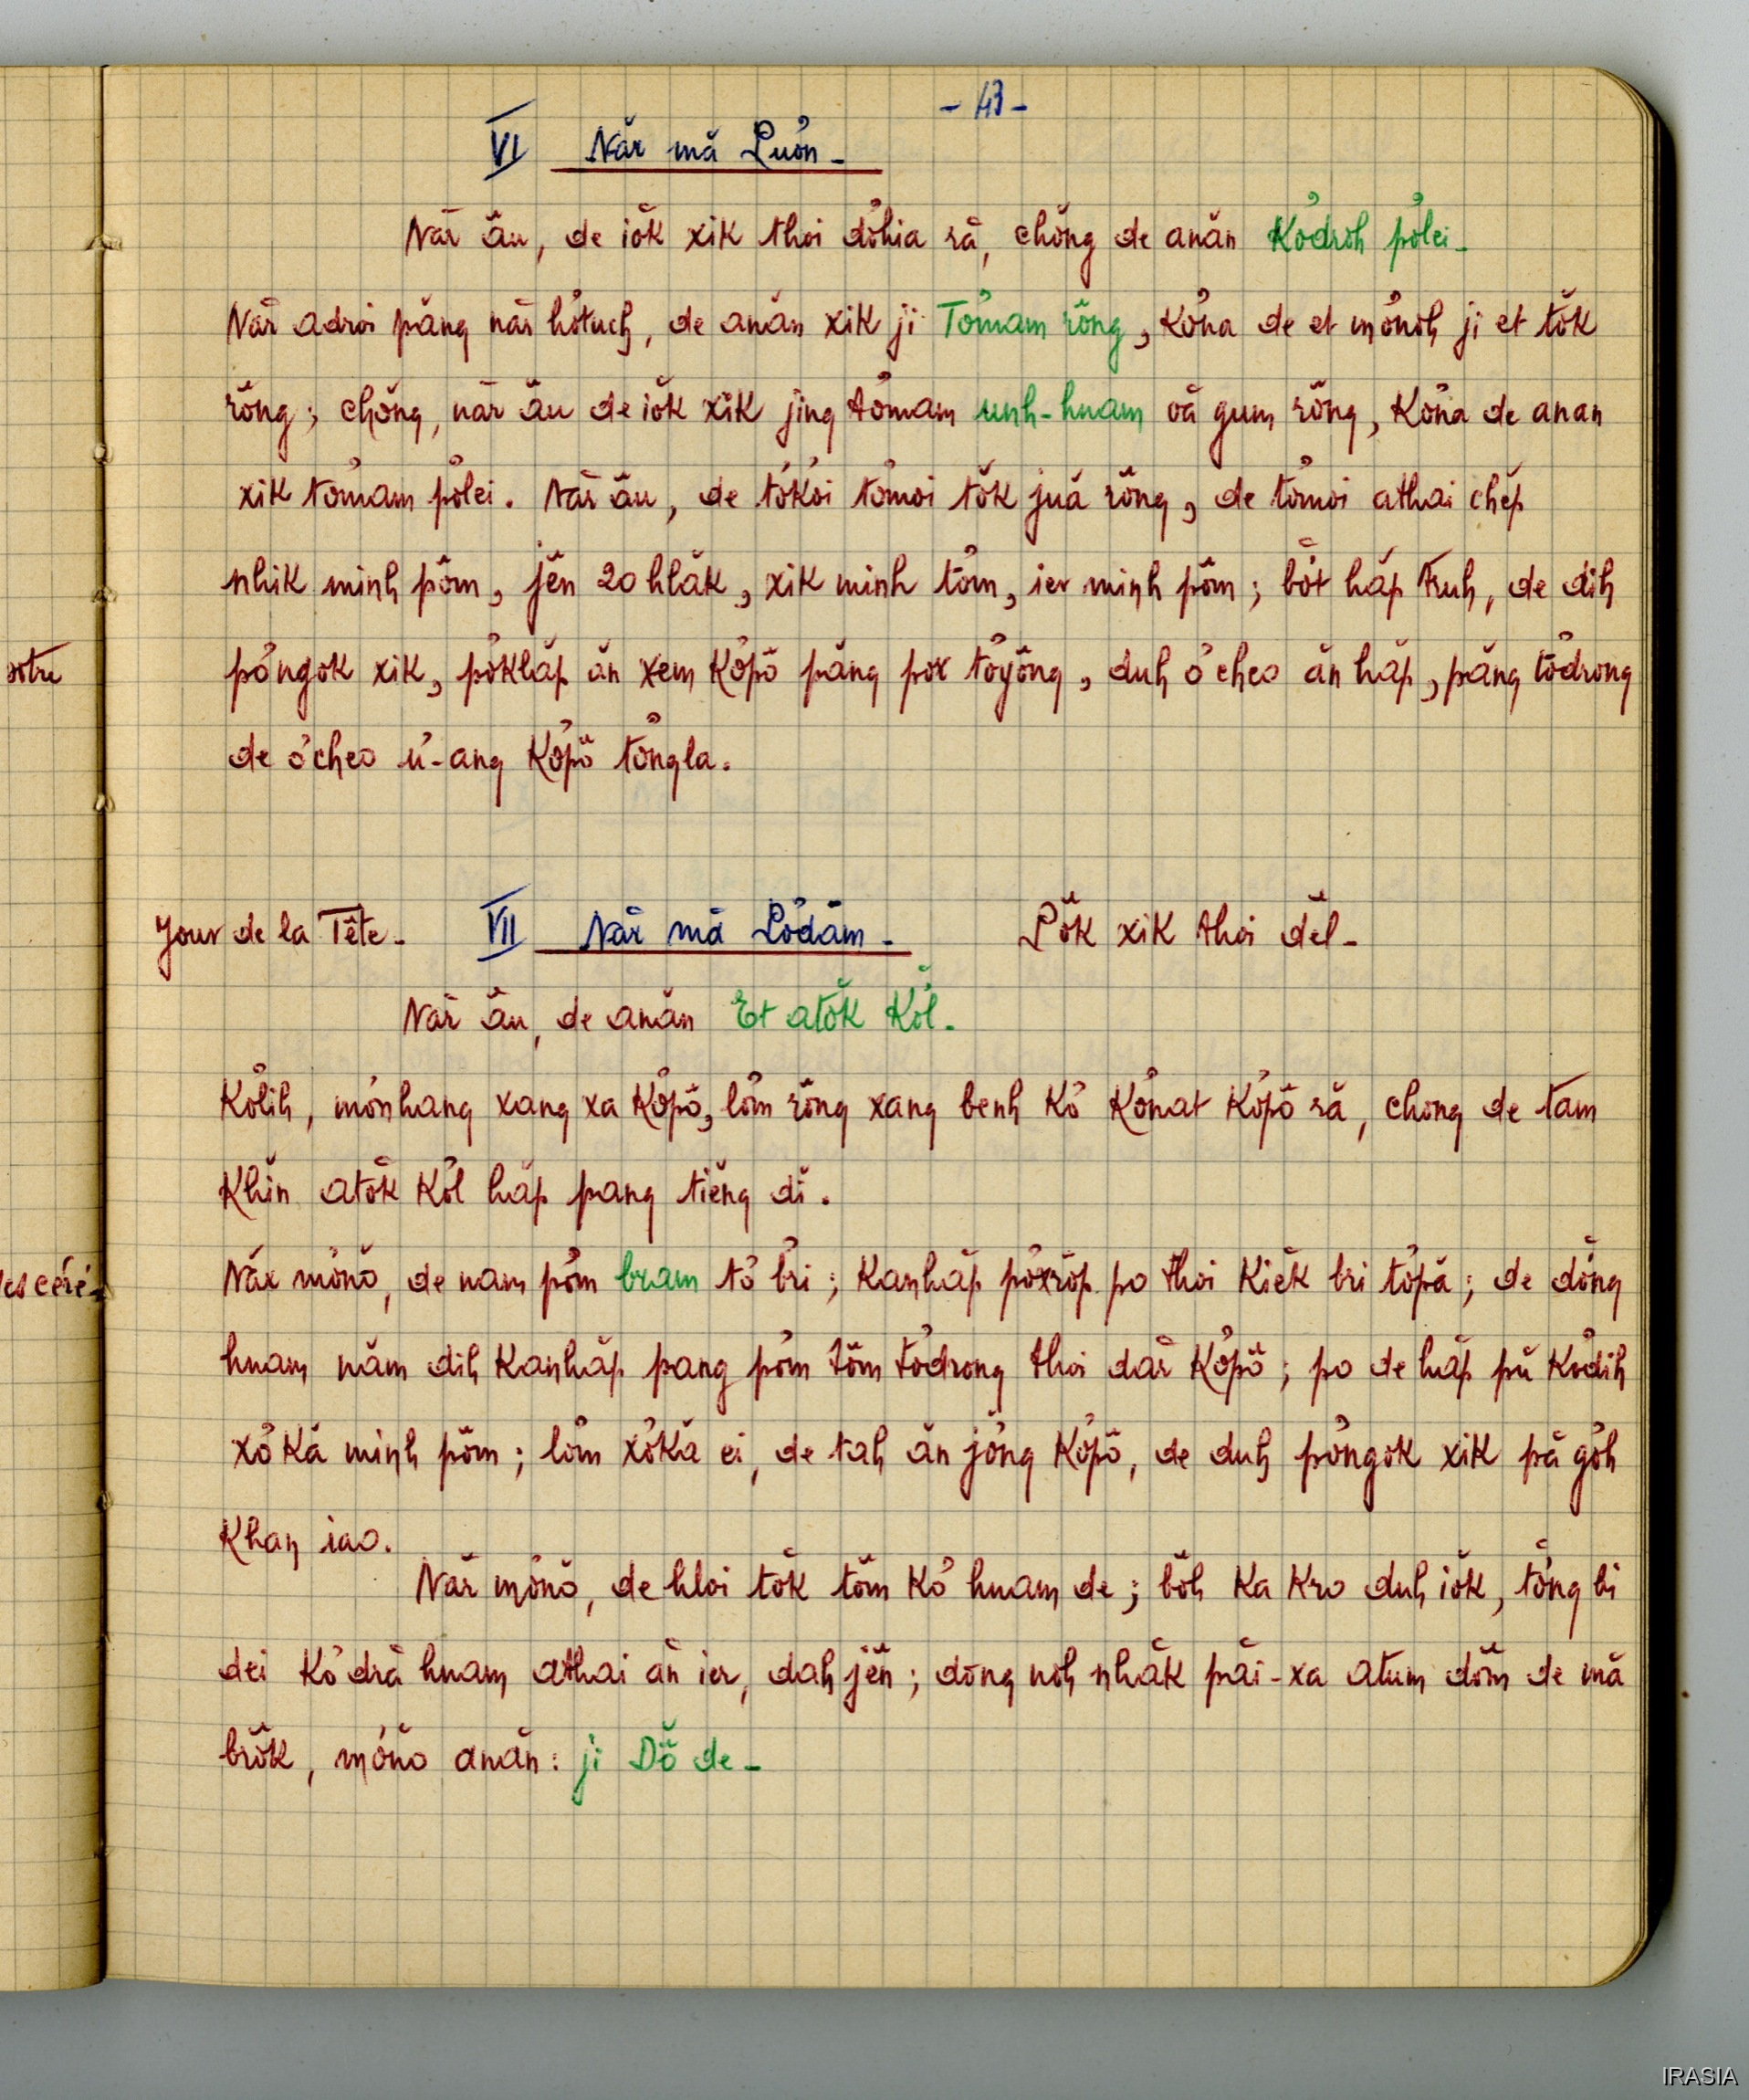 - 43 -
VI Năr mă Luơ̆n -
Năr ău, de iŏk xik thoi dơ̆hia ră, chŏng de anăn Kơ̆drŏh pơ̆lei -
Năr adroi păng năr hơ̆tuch, de anăn xik ji Tơ̆mam rŏng, Kơ̆na de et mơ̆nŏh ji et tŏk
rŏng ; chŏng, năr ău de iŏk xik jing tơ̆mam unh-hnam oă gum rŏng, Kơ̆na de anan
xik tơ̆mam pơ̆lei. Năr ău, de tơ̆kơi tơ̆moi tŏk juă rŏng, de tơ̆moi athai chĕp
nhik minh pŏm, jĕn 20 hlăk, xik minh tŏm, ier minh pŏm ; bơ̆t hăp truh, de dih
pơ̆ngok xik, pơ̆klăp ăn xem Kơ̆pô păng pox tơ̆yŏng, duh ơ̆ cheo ăn hăp, păng tơ̆drong
de ơ̆cheo ư-ang Kơ̆pô tơ̆ngla.
Jour de la Tête - VII Năr mă Lơ̆dăm - Lŏk xik thoi dĕl -
Năr ău, de anăn Et atŏk Kơ̆l -
Kơ̆lih, mơ̆nhang xang xa Kơ̆pô, lơ̆m rŏng xang benh kơ̆ Kơ̆nat Kơ̆pô ră, chŏng de tam
Khŭn atŏk Kơ̆l hăp pang tiĕng dĭ.
Năr mơ̆nŏ, de nam pơ̆m bram tơ̆ bri ; Kanhăp pơ̆xrŏp po thoi Kiĕk bri tơ̆pă ; de dơ̆ng
hnam năm dih Kanhăp pang pơ̆m tŏm tơ̆drong thoi dăr Kơ̆pô ; po de hăp pŭ Kơdih
xơ̆kă minh pŏm ; lơ̆m xơ̆kă ei, de tah ăn jơ̆ng Kơ̆pô, de duh pơ̆ngok xik pă gơ̆h
Khan iao.
Năr mơ̆nŏ, de hloi tŏk tŏm kơ̆ hnam de ; bŏh ka kro duh iŏk, tơ̆ng bi
dei Kơ̆dră hnam athai ăn ier, dah jĕn ; dơ̆ng nŏh nhăk păi-xa atum dŏm de mă
brŏk, mơ̆nŏ anăn : ji Dŏ de -